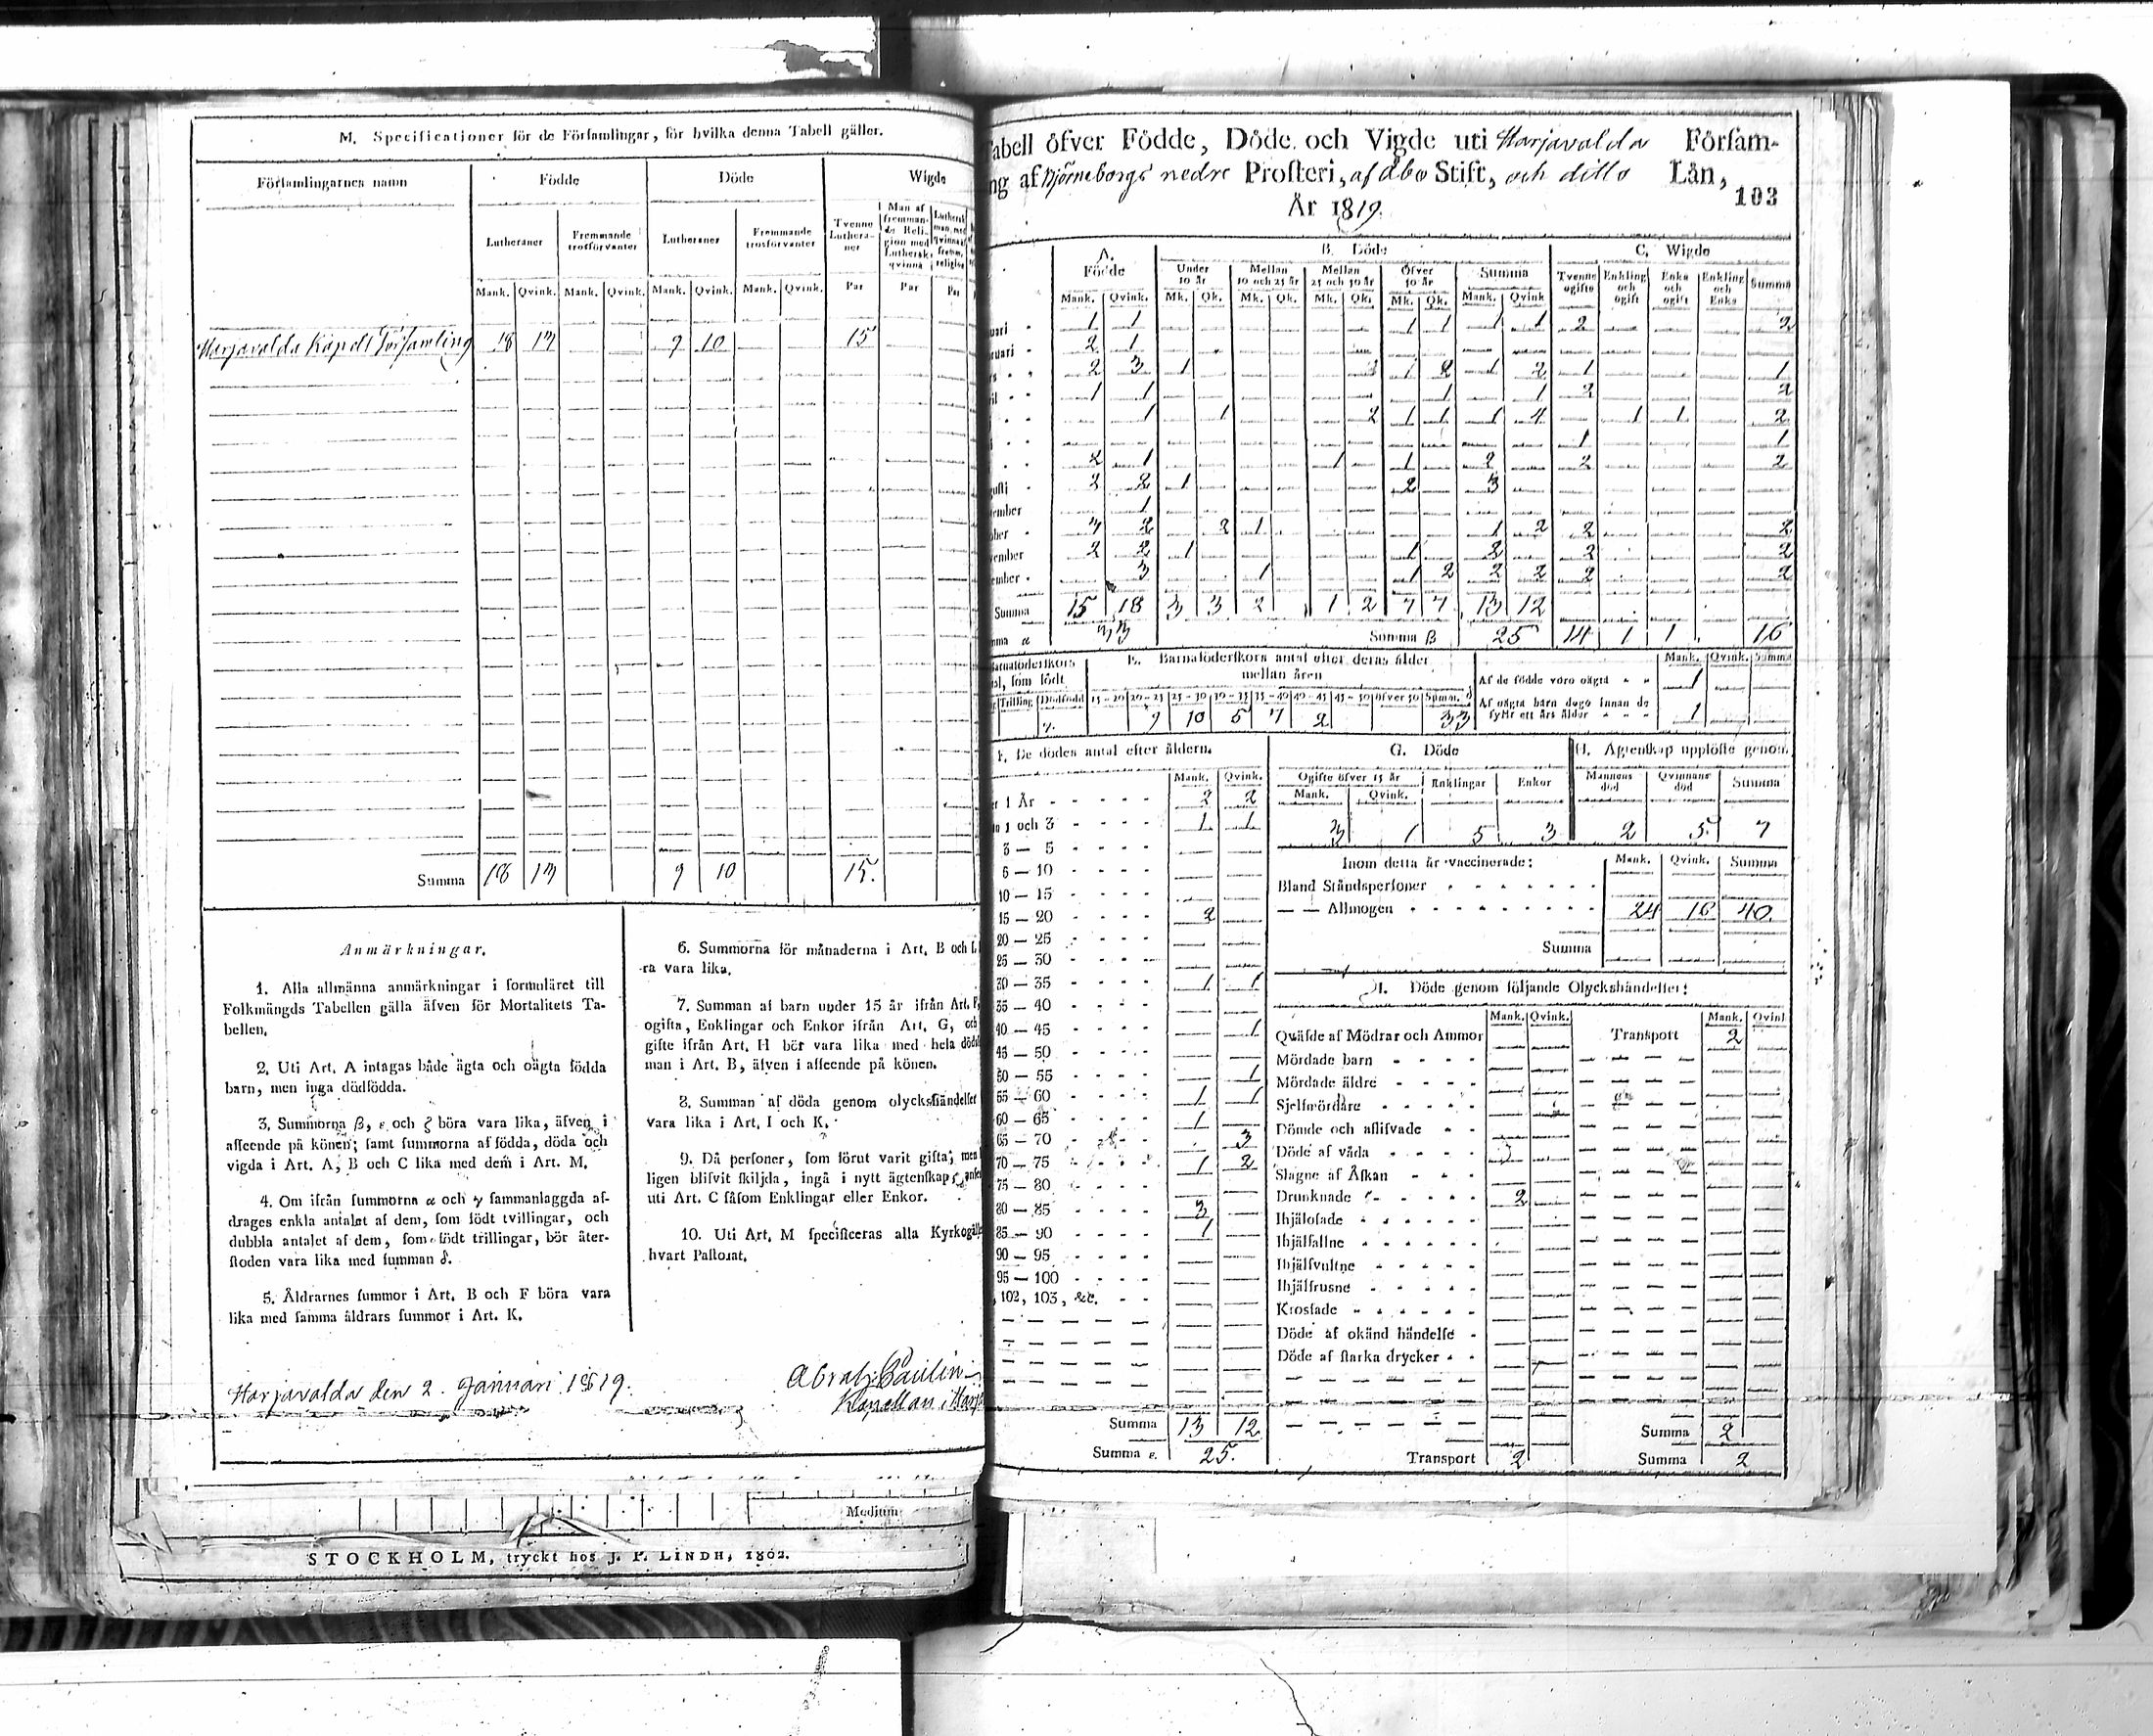 M. Specificationer för de Församlingar, för hvilka denna Tabell gäller.
Församlingarnes namn Födde Döde Wigde
Lutheraner Fremmande trosförvanter Lutheraner Fremmande trosförvanter Tvenne Lutheraner Man af fremmande Religion med Luthersk qvinna
Mank. Qvink. Mank. Qvink. Mank. Qvink. Mank. Qvink. Par Par Par
Harjavalda Kapells Församling 18 17 9 10 15
Summa 18 17 9 10 15.
Anmärkningar.
1. Alla allmänna anmärkningar i formuläret till
Folkmängds Tabellen gälla äfven för Mortalitets Ta-
bellen.
2. Uti Art. A intagas både ägta och oägta födda
barn, men inga dödfödda.
3. Summorna β, ε och ζ böra vara lika, äfven i
afseende på könen; samt summorna af födda, döda och
vigda i Art. A, B och C lika med dem i Art. M.
4. Om ifrån summorna α och γ sammanlaggda af-
drages enkla antalet af dem, som födt tvillingar, och
dubbla antalet af dem, som födt trillingar, bör åter-
stoden vara lika med summan δ.
5. Åldrarnes summor i Art. B och F böra vara
lika med samma åldrars summor i Art. K.
6. Summorna för månaderna i Art. B och L
ra vara lika.
7. Summan af barn under 15 år ifrån Art. F,
ogifta, Enklingar och Enkor ifrån Art. G, och
gifte ifrån Art. H bör vara lika med hela döds
man i Art. B, älven i afseende på könen.
8. Summan af döda genom olyckshändelser
vara lika i Art. I och K.
9. Då personer, som förut varit gifta, men
ligen blifvit skiljda, ingå i nytt ägtenskap,
uti Art. C såsom Enklingar eller Enkor.
10. Uti Art. M specificeras alla Kyrkogäll
hvart Pastorat.
Harjavalda den 2. Januari 1819.
Abrah. Paulin
Kapellan i Harja
Medium
STOCKHOLM, tryckt hos J. P. LINDH, 1802.
abell öfver Födde, Döde och Vigde uti Harjavalda Församling af Björneborgs nedre Prosteri, af Åbo Stift, och ditto Län,
103
År 1819.
A. Födde B. Döde C. Wigde
Under 10 år Mellan 10 och 25 år Mellan 25 och 50 år Öfver 50 år Summa Tvenne ogifte Enkling och ogift Enka och ogift Enkling och Enka Summa
Mank. Qvink. Mk. Qk. Mk. Qk. Mk. Qk. Mk. Qk. Mank. Qvink
uari 1 1 1 1 1 1 2 2
ruari 2 1
rs 2 3 1 1 2 1 2 1 1
il 1 1 1 1 2 2
1 1 2 1 1 1 4 1 1 2
1 1
2 1 1 1 2 2 2
gusti 2 2 1 2 3
tember 1
ober 3 2 2 1 1 2 2 2
vember 2 2 1 1 2 2 2
ember 3 1 1 2 2 2 2 2
Summa 15 18 3 3 2 1 2 7 7 13 12
mma α 33 Summa β 25 14 1 1 16
Barnaföderskors
al, som födt
Trilling Dödfödd
E. Barnaföderskors antal efter deras ålder
mellan åren
15-20 20-25 25-30 30-35 35-40 40-45 45-50 öfver 50 Summ. δ
9 10 5 7 2 33
Mank. Qvink. Summa
Af de födde voro oägta 1
Af oägta barn dogo innan de
fyllt ett års ålder 1
F. De dödes antal efter åldern.
Mank. Qvink.
1 År 2 2
1 och 3 1 1
3 — 5
6 — 10
10 — 15
15 — 20 2
20 — 25
25 — 30
30 — 35 1 1
35 — 40
40 — 45 1
45 — 50
50 — 55 1
55 — 60 1 1
60 — 65 1
65 — 70 3
70 — 75 1 2
75 — 80
80 — 85 3
85 — 90 1
90 — 95
95 — 100
102, 103, &c.
Summa 13 12
Summa ε. 25.
G. Döde
Ogifte öfver 15 år Enklingar Enkor
Mank. Qvink.
3 1 5 3
H. Ägtenskap upplöste genom
Mannens död Qvinnans död Summa
2 5 7
Inom detta år vaccinerade: Mank. Qvink. Summa
Bland Ståndspersoner
— — Allmogen 24 16 40.
Summa
I. Döde genom följande Olyckshändelser:
Mank. Qvink. Mank. Qvink
Qväfde af Mödrar och Ammor Transport 2
Mördade barn
Mördade äldre
Sjelfmördare
Dömde och aflifvade
Döde af våda
Slagne af Åskan
Drunknade 2
Ihjälosade
Ihjälfallne
Ihjälsvultne
Ihjälfrusne
Krossade
Döde af okänd händelse
Döde af starka drycker
Summa 2
Transport 2 Summa 2